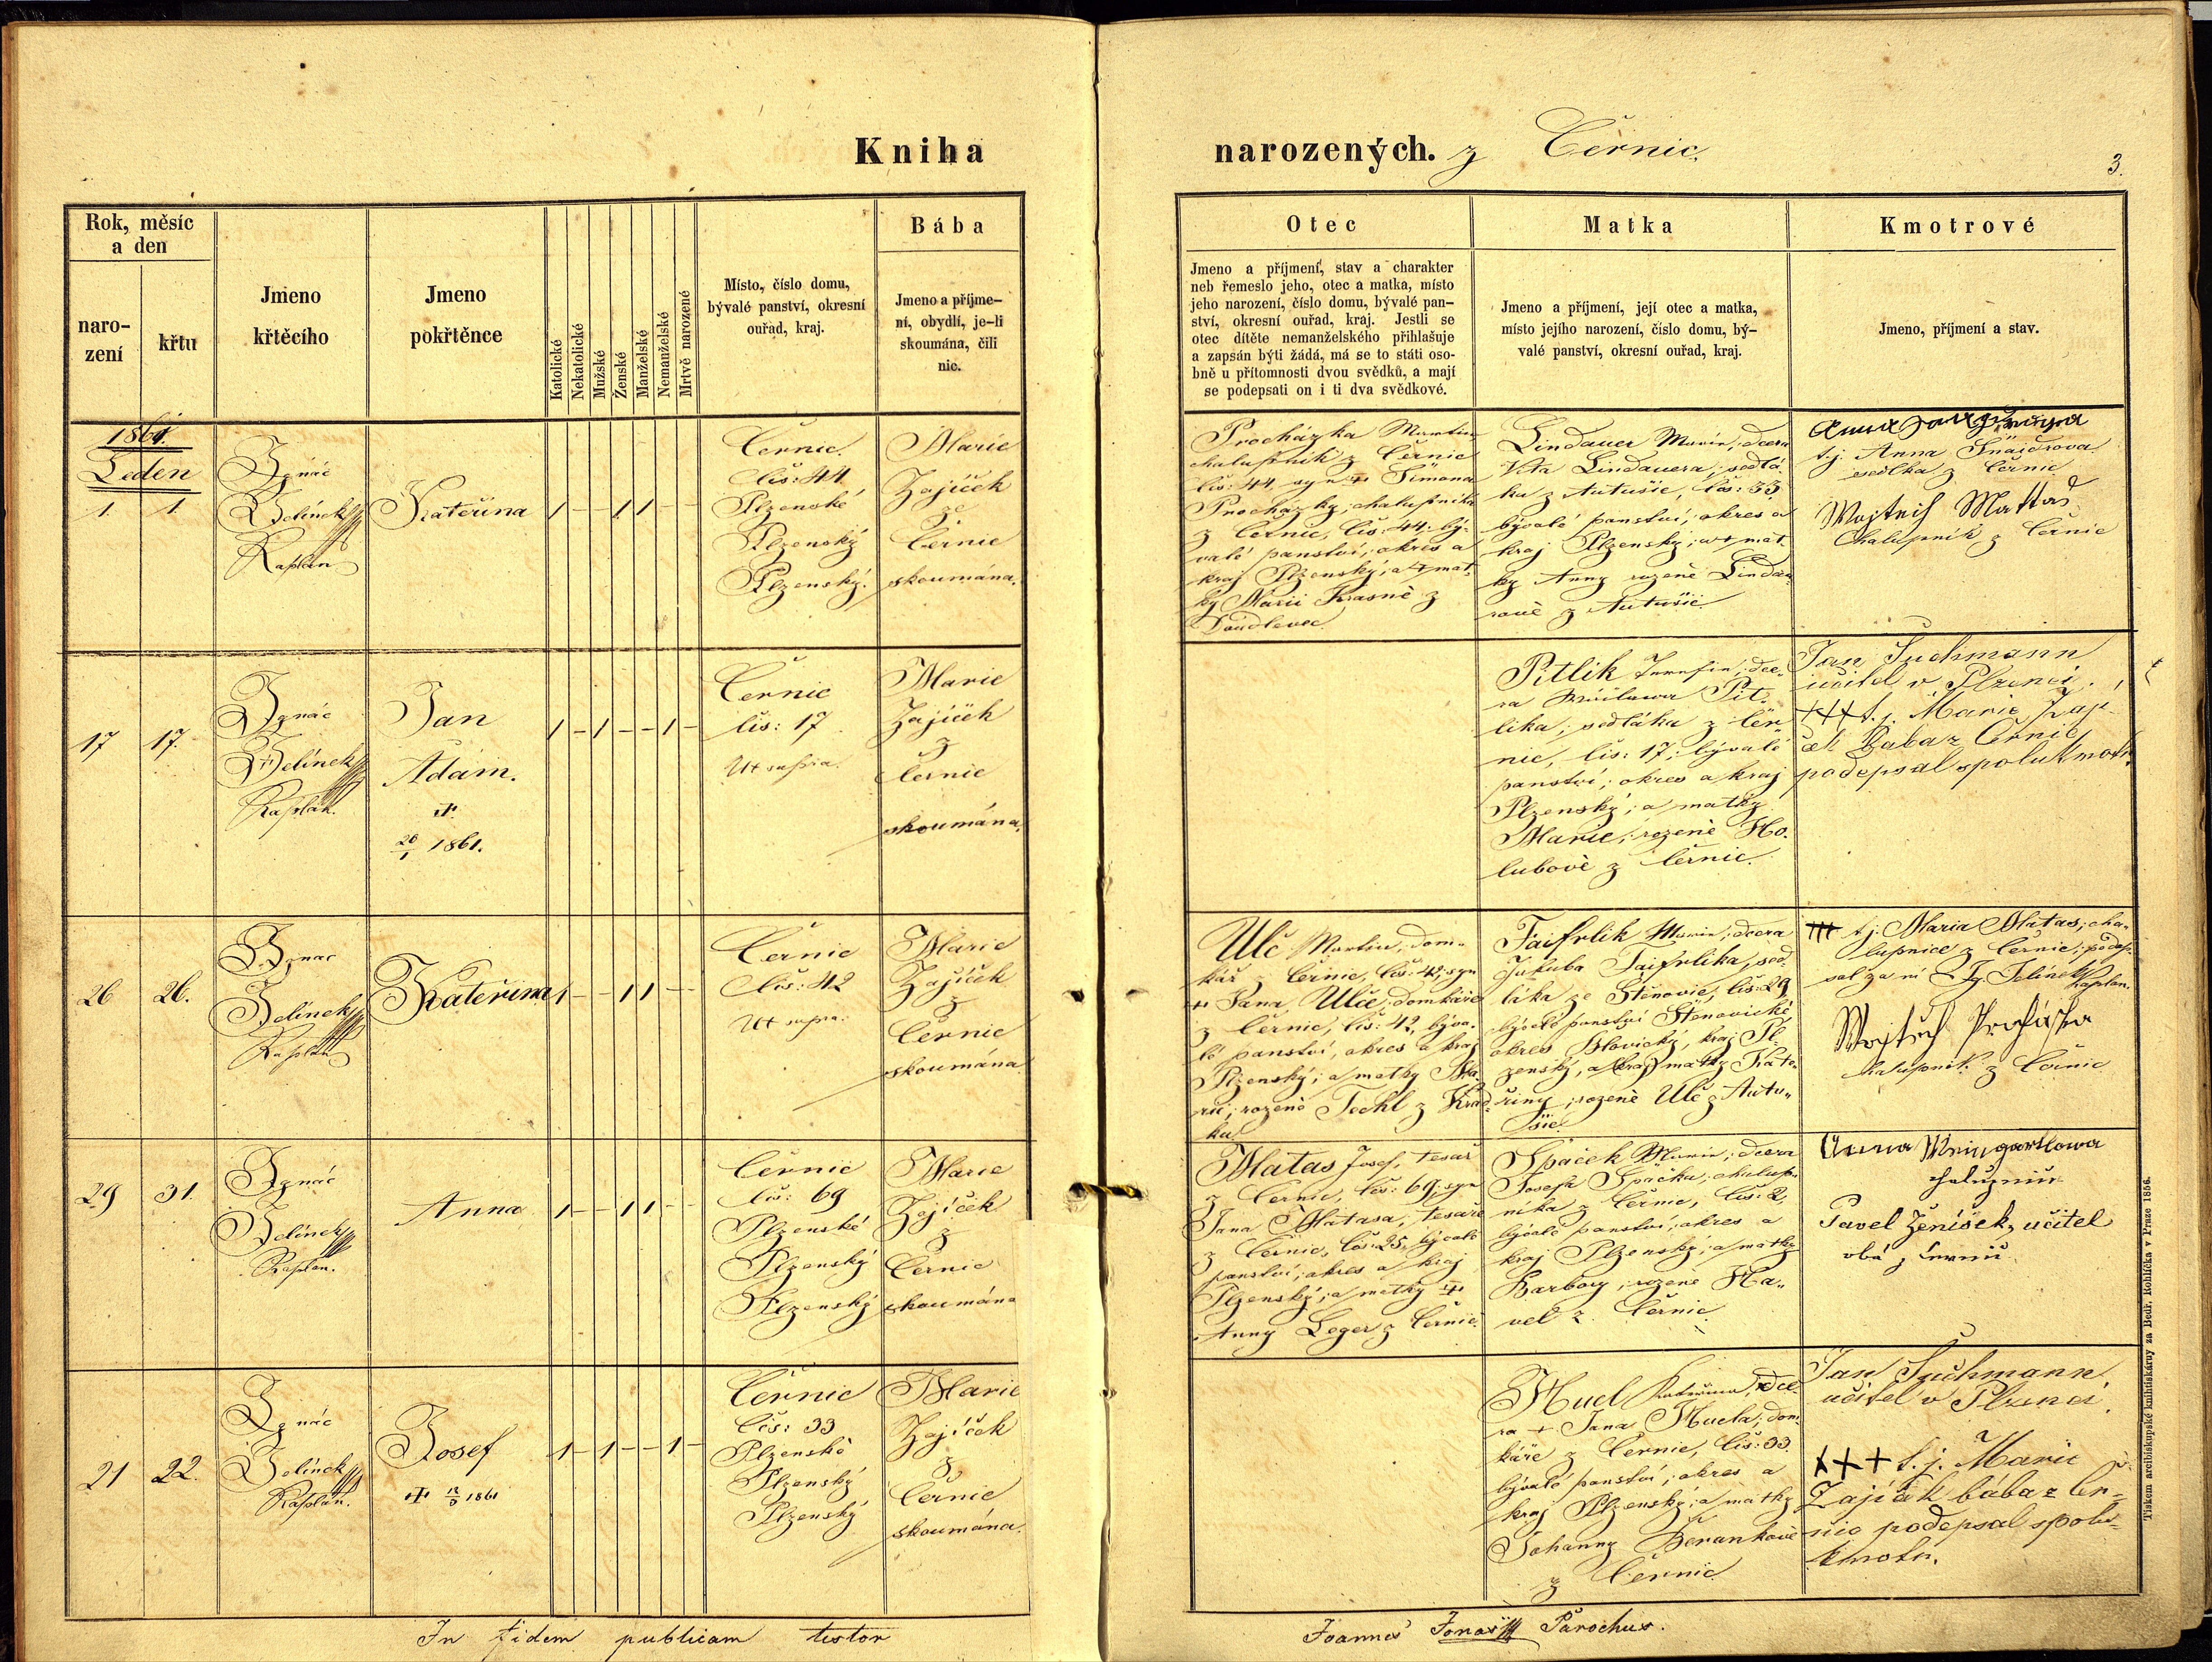 Kniha
narozených. z Černic.
3.
Rok, měsíc
a den
naro-
zení
křtu
Jmeno
křtěcího
Jmeno
pokřtěnce
Katolické
Nekatolické
Mužské
Ženské
Manželské
Nemanželské
Mrtvě narozené
Místo, číslo domu,
bývalé panství, okresní
ouřad, kraj.
Bába
Jmeno a příjme-
ní, obydlí, je-li
skoumána, čili
nic.
Otec
Jmeno a příjmení, stav a charakter
neb řemeslo jeho, otec a matka, místo
jeho narození, číslo domu, bývalé pan-
ství, okresní ouřad, kraj. Jestli se
otec dítěte nemanželského přihlašuje
a zapsán býti žádá, má se to státi oso-
bně u přítomnosti dvou svědků, a mají
se podepsati on i ti dva svědkové.
Matka
Jmeno a příjmení, její otec a matka,
místo jejího narození, číslo domu, bý-
valé panství, okresní ouřad, kraj.
Kmotrové
Jmeno, příjmení a stav.
1861.
Leden
1. 1.
Ignác
Jelínek
Kaplan
Kateřina
1 – – 1 1 – –
Černic.
čís: 44
Plzenské
Plzenský
Plzenský.
Marie
Zajíček
ze
Černic
skoumána.
Procházka Martin
chalupník z Černic
čís: 44 syn + Šimona
Procházky, chalupníka
z Černic, čís: 44. bý-
valé panství, okres a
kraj Plzenský; a + mat-
ky Marii Krasné z
Doudlevec.
Lindauer Marie, dcera
Víta Lindauera, sedlá-
ka z Autušic, čís: 33
bývalé panství, okres a
kraj Plzenský; a + mat-
ky Anny rozené Lindau-
rové z Autušic.
Anna
t.j. Anna Šnaidrova
sedlka z Černic
Wojtech Mattas
Chalupník z Černic
17 17.
Ignác
Jelínek
Kaplan.
Jan
Adam.
+
26/1 1861.
1 – 1 – – 1 –
Černic
čís: 17
Ut supra.
Marie
Zajíček
z
Černic
skoumána.
Pitlik Josefin, dce-
ra Pit-
lika, sedláka z Čer-
nic, čís: 17; bývalé
panství; okres a kraj
Plzenský; a matky
Marie, rozené Ho-
lubové z Černic.
Jan Suchmann
učitel v Plzenci.
+++ t.j. Marie Zají-
ček Baba z Černic
podepsal spolukmotr.
26 26.
Ignac
Jelínek
Kaplan
Kateřina
1 – – 1 1 – –
Černic
čís: 42
Ut supra.
Marie
Zajíček
z
Černic
skoumána
Ulč Martin, dom-
kář z Černic, čís: 42, syn
+ Jana Ulče, domkáře
z Černic, čís: 42, býva-
lé panství, okres a kraj
Plzenský; a matky Ma-
rie, rozené Techl z Hrad-
ku.
Faifrlik Marie, dcera
Jakuba Faifrlika, sed-
láka ze Štěnovic, čís: 29
bývalé panství Štěnovické,
okres Blovický, kraj Pl-
zenský, a matky Kate-
řiny, rozené Ulč z Autu-
šic.
+++ t.j. Maria Matas, cha-
lupnice z Černic; podep-
sal za ni Ig. Jelínek Kaplan.
Wojtěch
chalupník z Černic
29 31.
Ignác
Jelínek
Kaplan.
Anna
1 – – 1 1 – –
Černic
čís: 69
Plzenské
Plzenský
Plzenský
Marie
Zajíček
z
Černic
skoumána
Matas Josef, tesař
z Černic, čís: 69, syn
Jana Matasa, tesaře
z Černic, čís: 25, bývalé
panství, okres a kraj
Plzenský; a matky +
Anny Leger z Černic.
Špaček Marie, dcera
Josefa Špačka, chalup-
níka z Černic, čís: 2,
bývalé panství, okres a
kraj Plzenský; a matky
Barbory, rozené Ha-
vel z Černic.
Anna Weingartlowa
Pavel Ženíšek, učitel
oba z Černic.
21 22.
Ignác
Jelínek
Kaplan.
Josef
+ 12/5 1861
1 – 1 – – 1 –
Černic
čís: 33
Plzenské
Plzenský
Plzenský
Marie
Zajíček
z
Černic
skoumána.
Hucl Kateřina, dce-
ra + Jana Hucla, dom-
káře z Černic, čís: 33.
bývalé panství, okres a
kraj Plzenský; a matky
Johanny Beránkové
z Černic.
Jan Suchmann,
učitel v Plzenci.
+++ t.j. Marie
Zajíček bába z Čer-
nic podepsal spolu-
kmotr.
In fidem publicam testor
Joannes Jonas Parochus.
Tiskem arcibiskupské knihtiskárny za Bedř. Rohlíčka v Praze 1856.